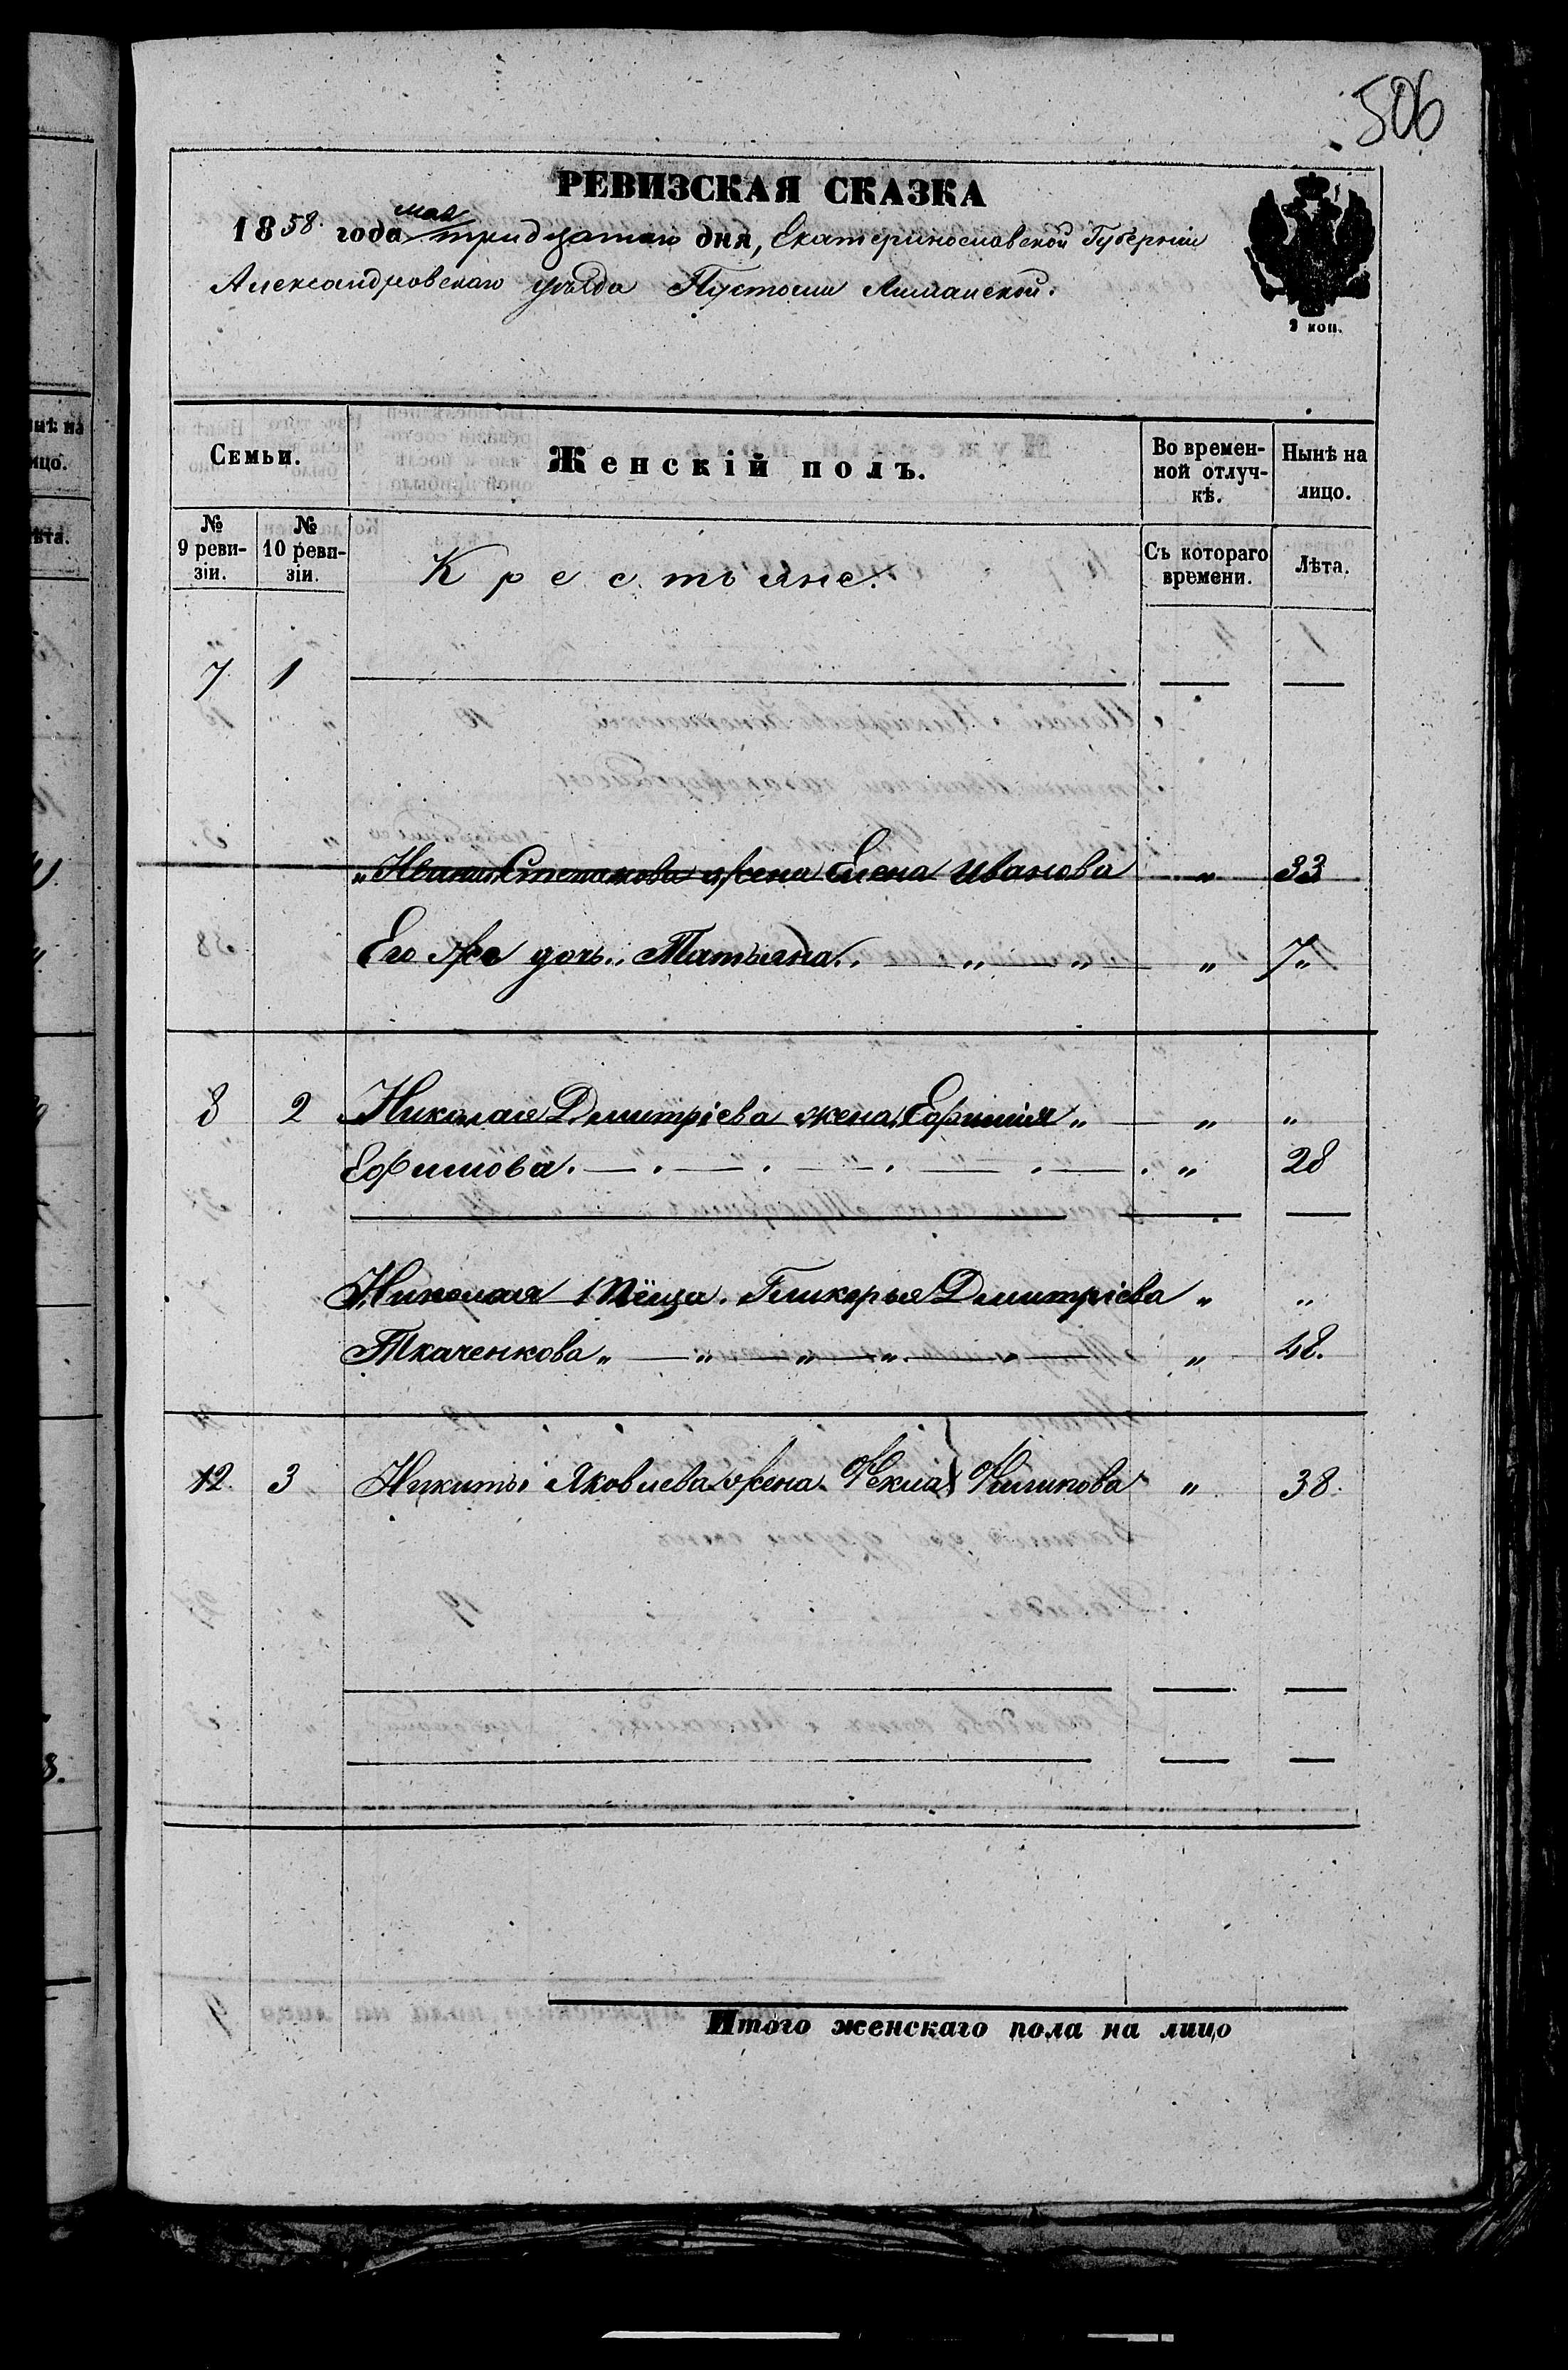 506
РЕВИЗСКАЯ СКАЗКА
мая
1858 года тридцатаго дня, Екатеринославской Губерніи
Александровскаго уѣзда Пустоши
2 коп.
Семьи.
Женскій полъ.
Во времен-
ной отлуч-
кѣ.
Нынѣ на
лицо.
№
9 реви-
зіи.
№
10 реви-
зіи.
Крестьяне.
Съ котораго
времени.
Лѣта.
7 1
„ Ивана Степанова жена Елена Иванова „ 33
Его же дочь „ Татьяна „ „ „ 7 „
8 2 Николая Дмитріева жена Ефимія „ „ „
Ефимова „ 28
Николая Гликерья Дмитріева „ „
Ткаченкова „ „ „ „ „ 48.
12. 3 Никиты Яковлева жена Фекла Филипова „ 38.
Итого женскаго пола на лицо